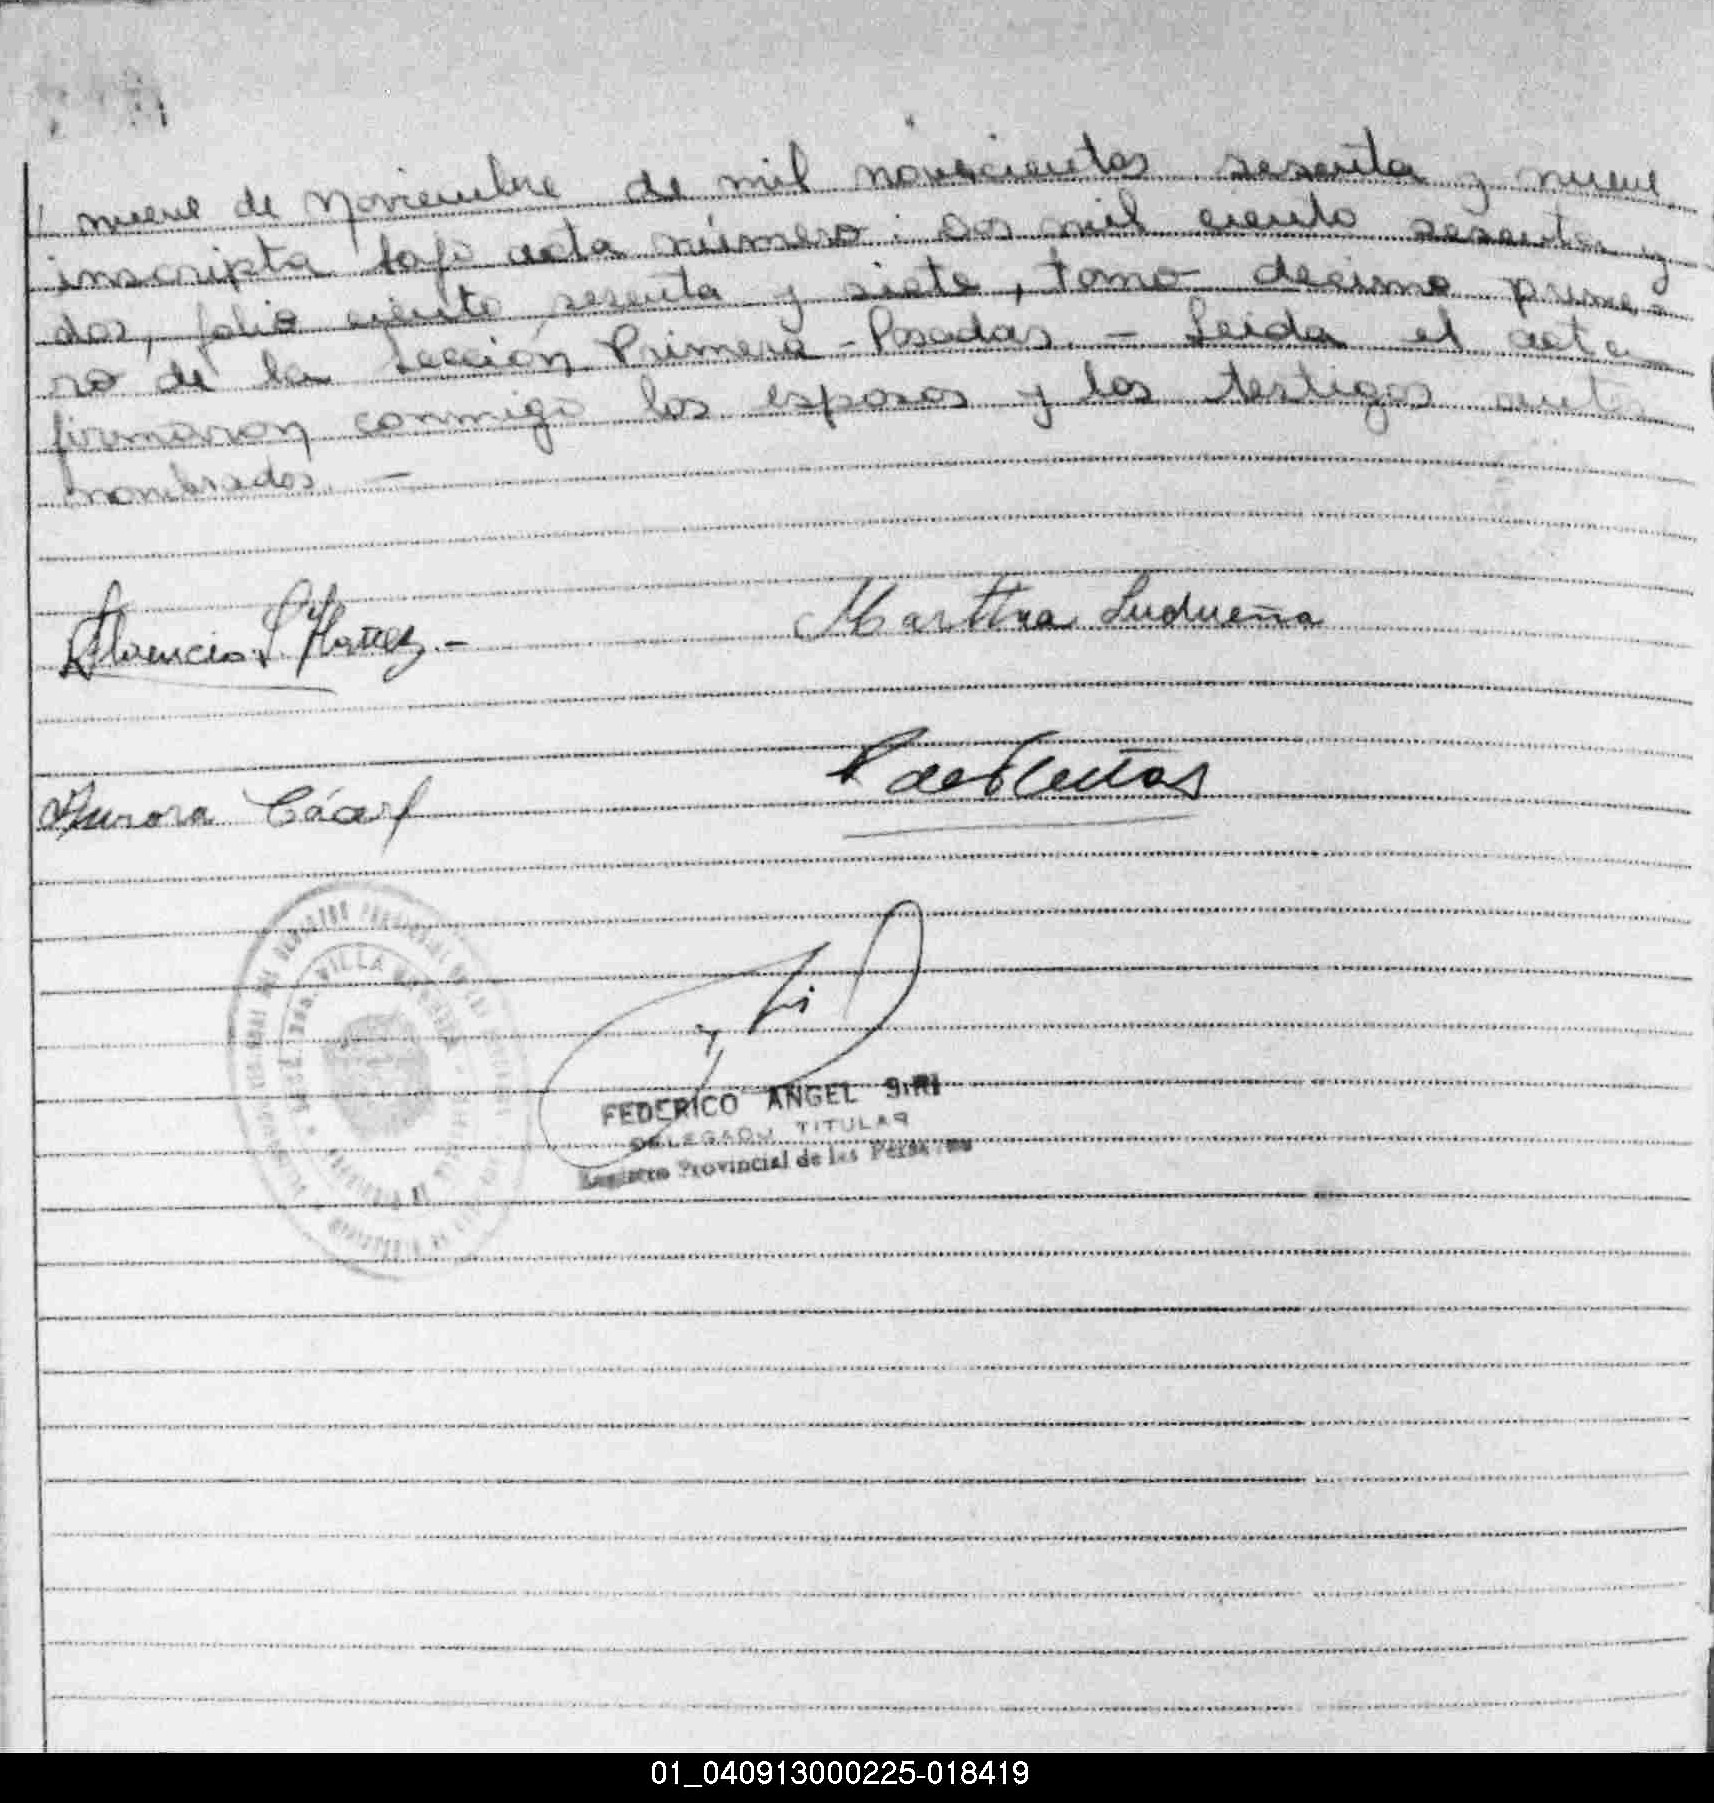 // nueve de Noviembre de mil novecientos sesenta y nueve,
inscripta bajo acta número: dos mil ciento sesenta y
dos, folio ciento sesenta y siete, tomo décimo prime-
ro de la Sección Primera - Posadas. - Leída el acta
firmaron conmigo los esposos y los testigos antes
nombrados. -
Martha Ludueña
Aurora
FEDERICO ANGEL SIRI
DELEGADO TITULAR
Registro Provincial de las Personas
VILLA
01_040913000225-018419